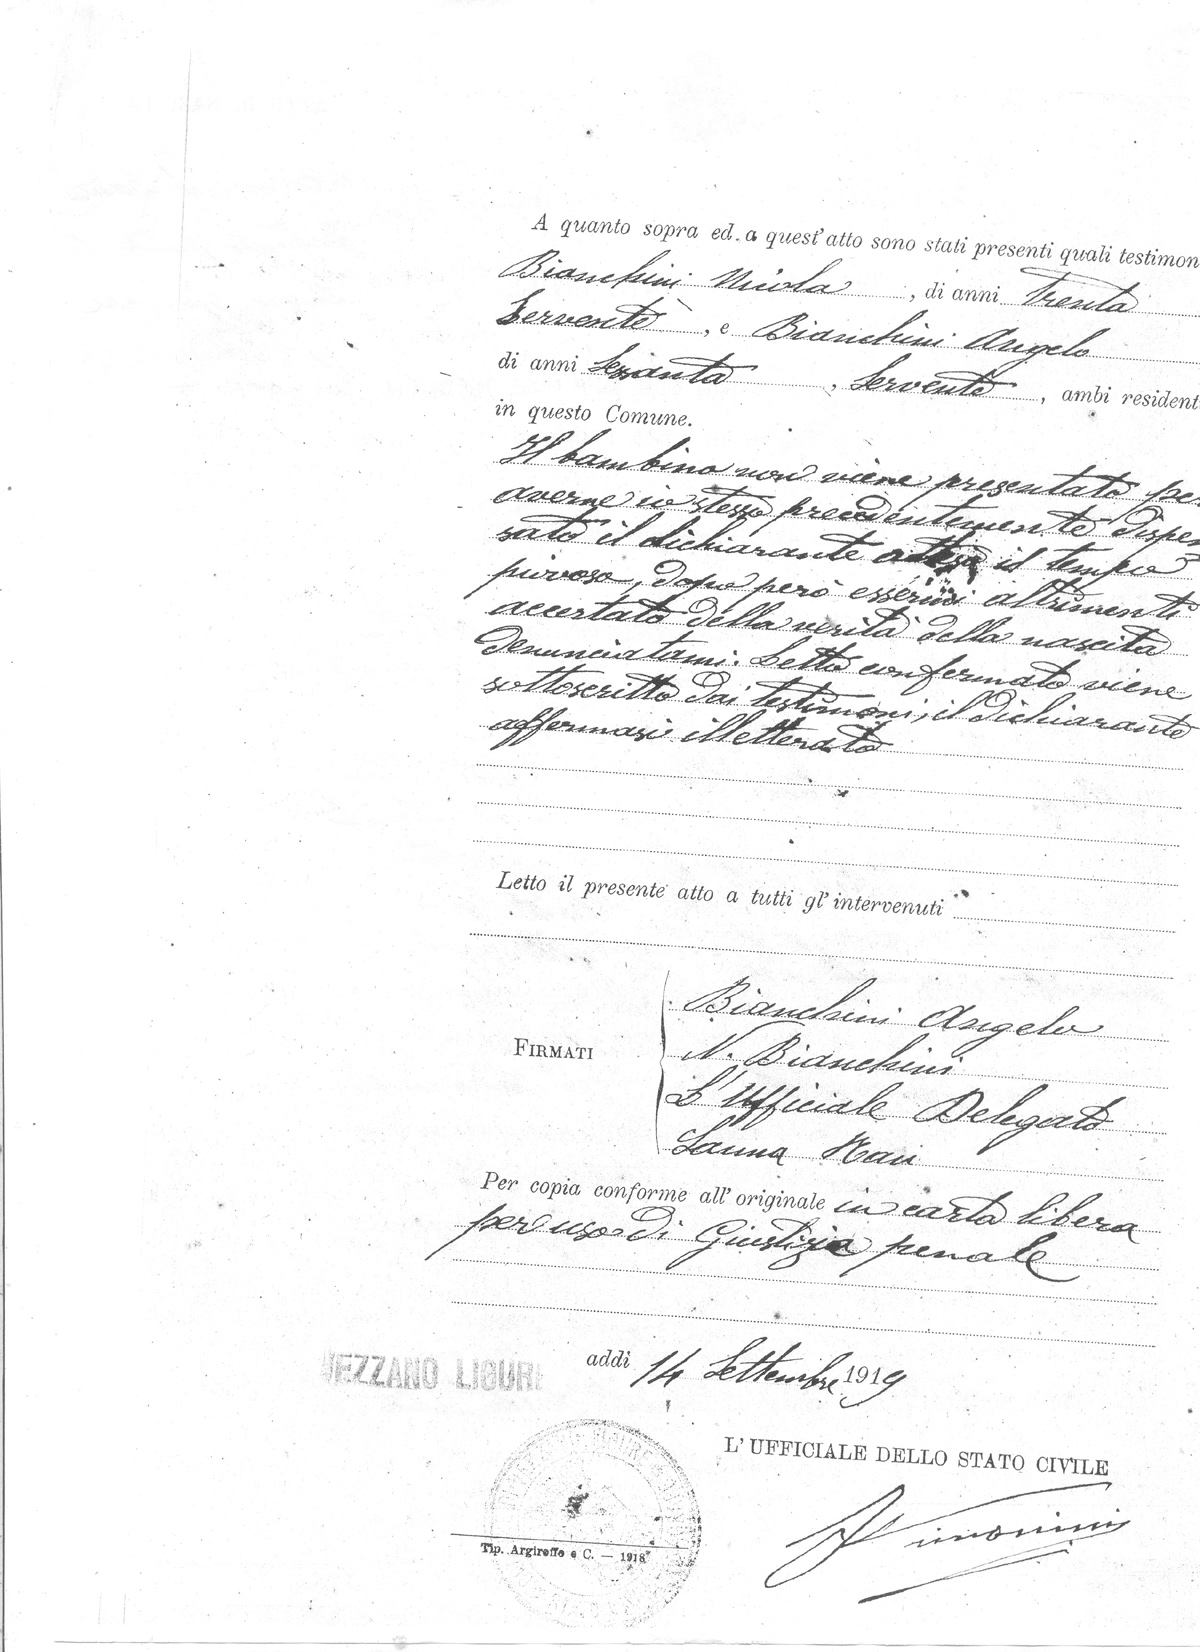 A quanto sopra ed a quest'atto sono stati presenti quali testimon
Bianchini Nicola, di anni Trenta
Servente, e Bianchini Angelo
di anni Sessanta, Servente, ambi resident
in questo Comune.
Il bambino non viene presentato per
averne io stesso precedentemente dispen
sato il dichiarante attesa il tempo
piovoso, dopo però essermi altrimenti
accertato della verità della nascita
denunciatami. Letto confermato viene
sottoscritto dai testimoni, il dichiarante
affermasi illetterato
Letto il presente atto a tutti gl'intervenuti
FIRMATI
Bianchini Angelo
N. Bianchini
L'Ufficiale Delegato
Per copia conforme all'originale in carta libera
per uso di Giustizia penale
addì 14 Settembre 1919
VEZZANO LIGURE
L'UFFICIALE DELLO STATO CIVILE
Tip. Argiroffo e C. — 1918